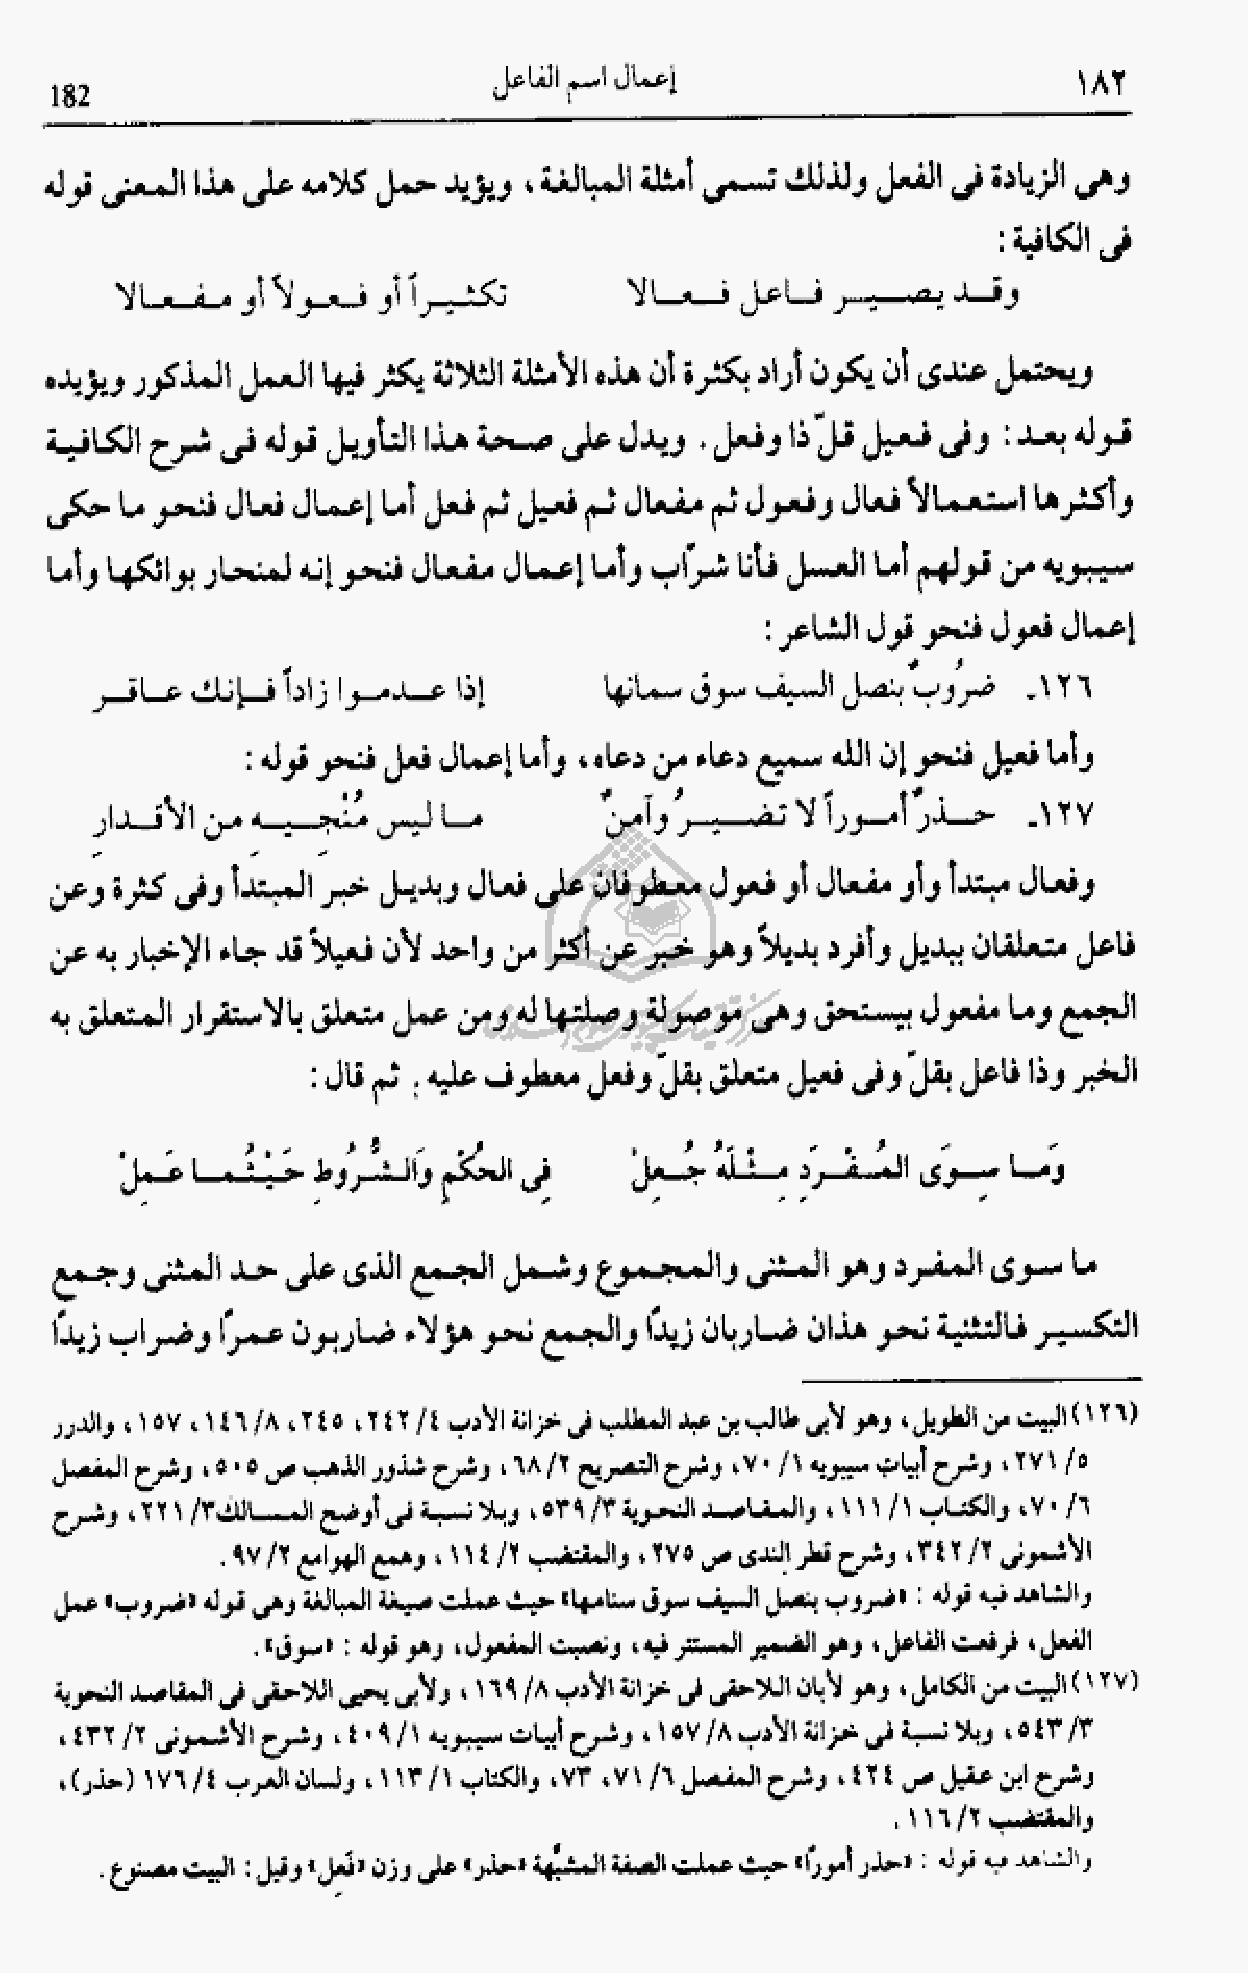 ١٨٢
إعمال اسم الفاعل
182
وهى الزيادة فى الفعل ولذلك تسمى أمثلة المبالغة ، ويؤيد حمل كلامه على هذا المعنى قوله
فى الكافية :
وقـد يصـيـر فـاعل فـعـالا تكثـيـراً أو فـعـولاً أو مـفـعـالا
ويحتمل عندى أن يكون أراد بكثرة أن هذه الأمثلة الثلاثة يكثر فيها العمل المذكور ويؤيده
قوله بعد : وفى فعيل قلّ ذا وفعل . ويدل على صحة هذا التأويل قوله فى شرح الكافية
وأكثرها استعمالاً فعال وفعول ثم مفعال ثم فعيل ثم فعل أما إعمال فعال فنحو ما حكى
سيبويه من قولهم أما العسل فأنا شرّاب وأما إعمال مفعال فنحو إنه لمنحار بوائكها وأما
إعمال فعول فنحو قول الشاعر :
١٢٦ـ ضرُوبٌ بنصل السيف سوق سمانها إذا عـدمـوا زاداً فـإنك عـاقـر
وأما فعيل فنحو إن الله سميع دعاء من دعاه ، وأما إعمال فعل فنحو قوله :
١٢٧ـ حـذرٌ أمـوراً لا تضـيـرُ وآمنٌ مـا ليس مُنْجِـيـهِ من الأقـدارِ
وفعال مبتدأ وأو مفعال أو فعول معطوفان على فعال وبديـل خبر المبتدأ وفى كثرة وعن
فاعل متعلقان ببديل وأفرد بديلاً وهو خبر عن أكثر من واحد لأن فعيلاً قد جاء الإخبار به عن
الجمع وما مفعول بيستحق وهى موصولة وصلتها له ومن عمل متعلق بالاستقرار المتعلق به
الخبر وذا فاعل بقلّ وفى فعيل متعلق بقلّ وفعل معطوف عليه . ثم قال :
وَمـا سِـوَى المُـفْـرَدِ مِـثْـلَهُ جُـعِلْ فِى الحُكْمِ وَالـشُّـرُوطِ حَـيْـثُـمـا عَـمِلْ
ما سوى المفرد وهو المثنى والمجموع وشمل الجمع الذى على حد المثنى وجمع
التكسير فالتثنية نحو هذان ضاربان زيدًا والجمع نحو هؤلاء ضاربون عمرًا وضراب زيدًا
(١٢٦) البيت من الطويل ، وهو لأبى طالب بن عبد المطلب فى خزانة الأدب ٤/ ٢٤٢ ، ٢٤٥ ، ٨/ ١٤٦ ، ١٥٧ ، والدرر
٥/ ٢٧١ ، وشرح أبيات سيبويه ١/ ٧٠ ، وشرح التصريح ٢/ ٦٨ ، وشرح شذور الذهب ص ٥٠٥ ، وشرح المفصل
٦/ ٧٠ ، والكتـاب ١/ ١١١ ، والمقـاصـد النحوية ٣/ ٥٣٩ ، وبلا نسبة فى أوضح المسالك ٣/ ٢٢١ ، وشرح
الأشمونى ٢/ ٣٤٢ ، وشرح قطر الندى ص ٢٧٥ ، والمقتضب ٢/ ١١٤ ، وهمع الهوامع ٢/ ٩٧ .
والشاهد فيه قوله : «ضروب بنصل السيف سوق سنامها» حيث عملت صيغة المبالغة وهى قوله «ضروب» عمل
الفعل ، فرفعت الفاعل ، وهو الضمير المستتر فيه ، ونصبت المفعول ، وهو قوله : «سوق» .
(١٢٧) البيت من الكامل ، وهو لأبان اللاحقى فى خزانة الأدب ٨/ ١٦٩ ، ولأبى يحيى اللاحقى فى المقاصد النحوية
٣/ ٥٤٣ ، وبلا نسبة فى خزانة الأدب ٨/ ١٥٧ ، وشرح أبيات سيبويه ١/ ٤٠٩ ، وشرح الأشمونى ٢/ ٤٣٢ ،
وشرح ابن عقيل ص ٤٢٤ ، وشرح المفصل ٦/ ٧١ ، ٧٣ ، والكتاب ١/ ١١٣ ، ولسان العرب ٤/ ١٧٦ (حذر) ،
والمقتضب ٢/ ١١٦ .
والشاهد فيه قوله : «حذر أمورًا» حيث عملت الصفة المشبّهة «حذر» على وزن «فَعِل» وقيل : البيت مصنوع .